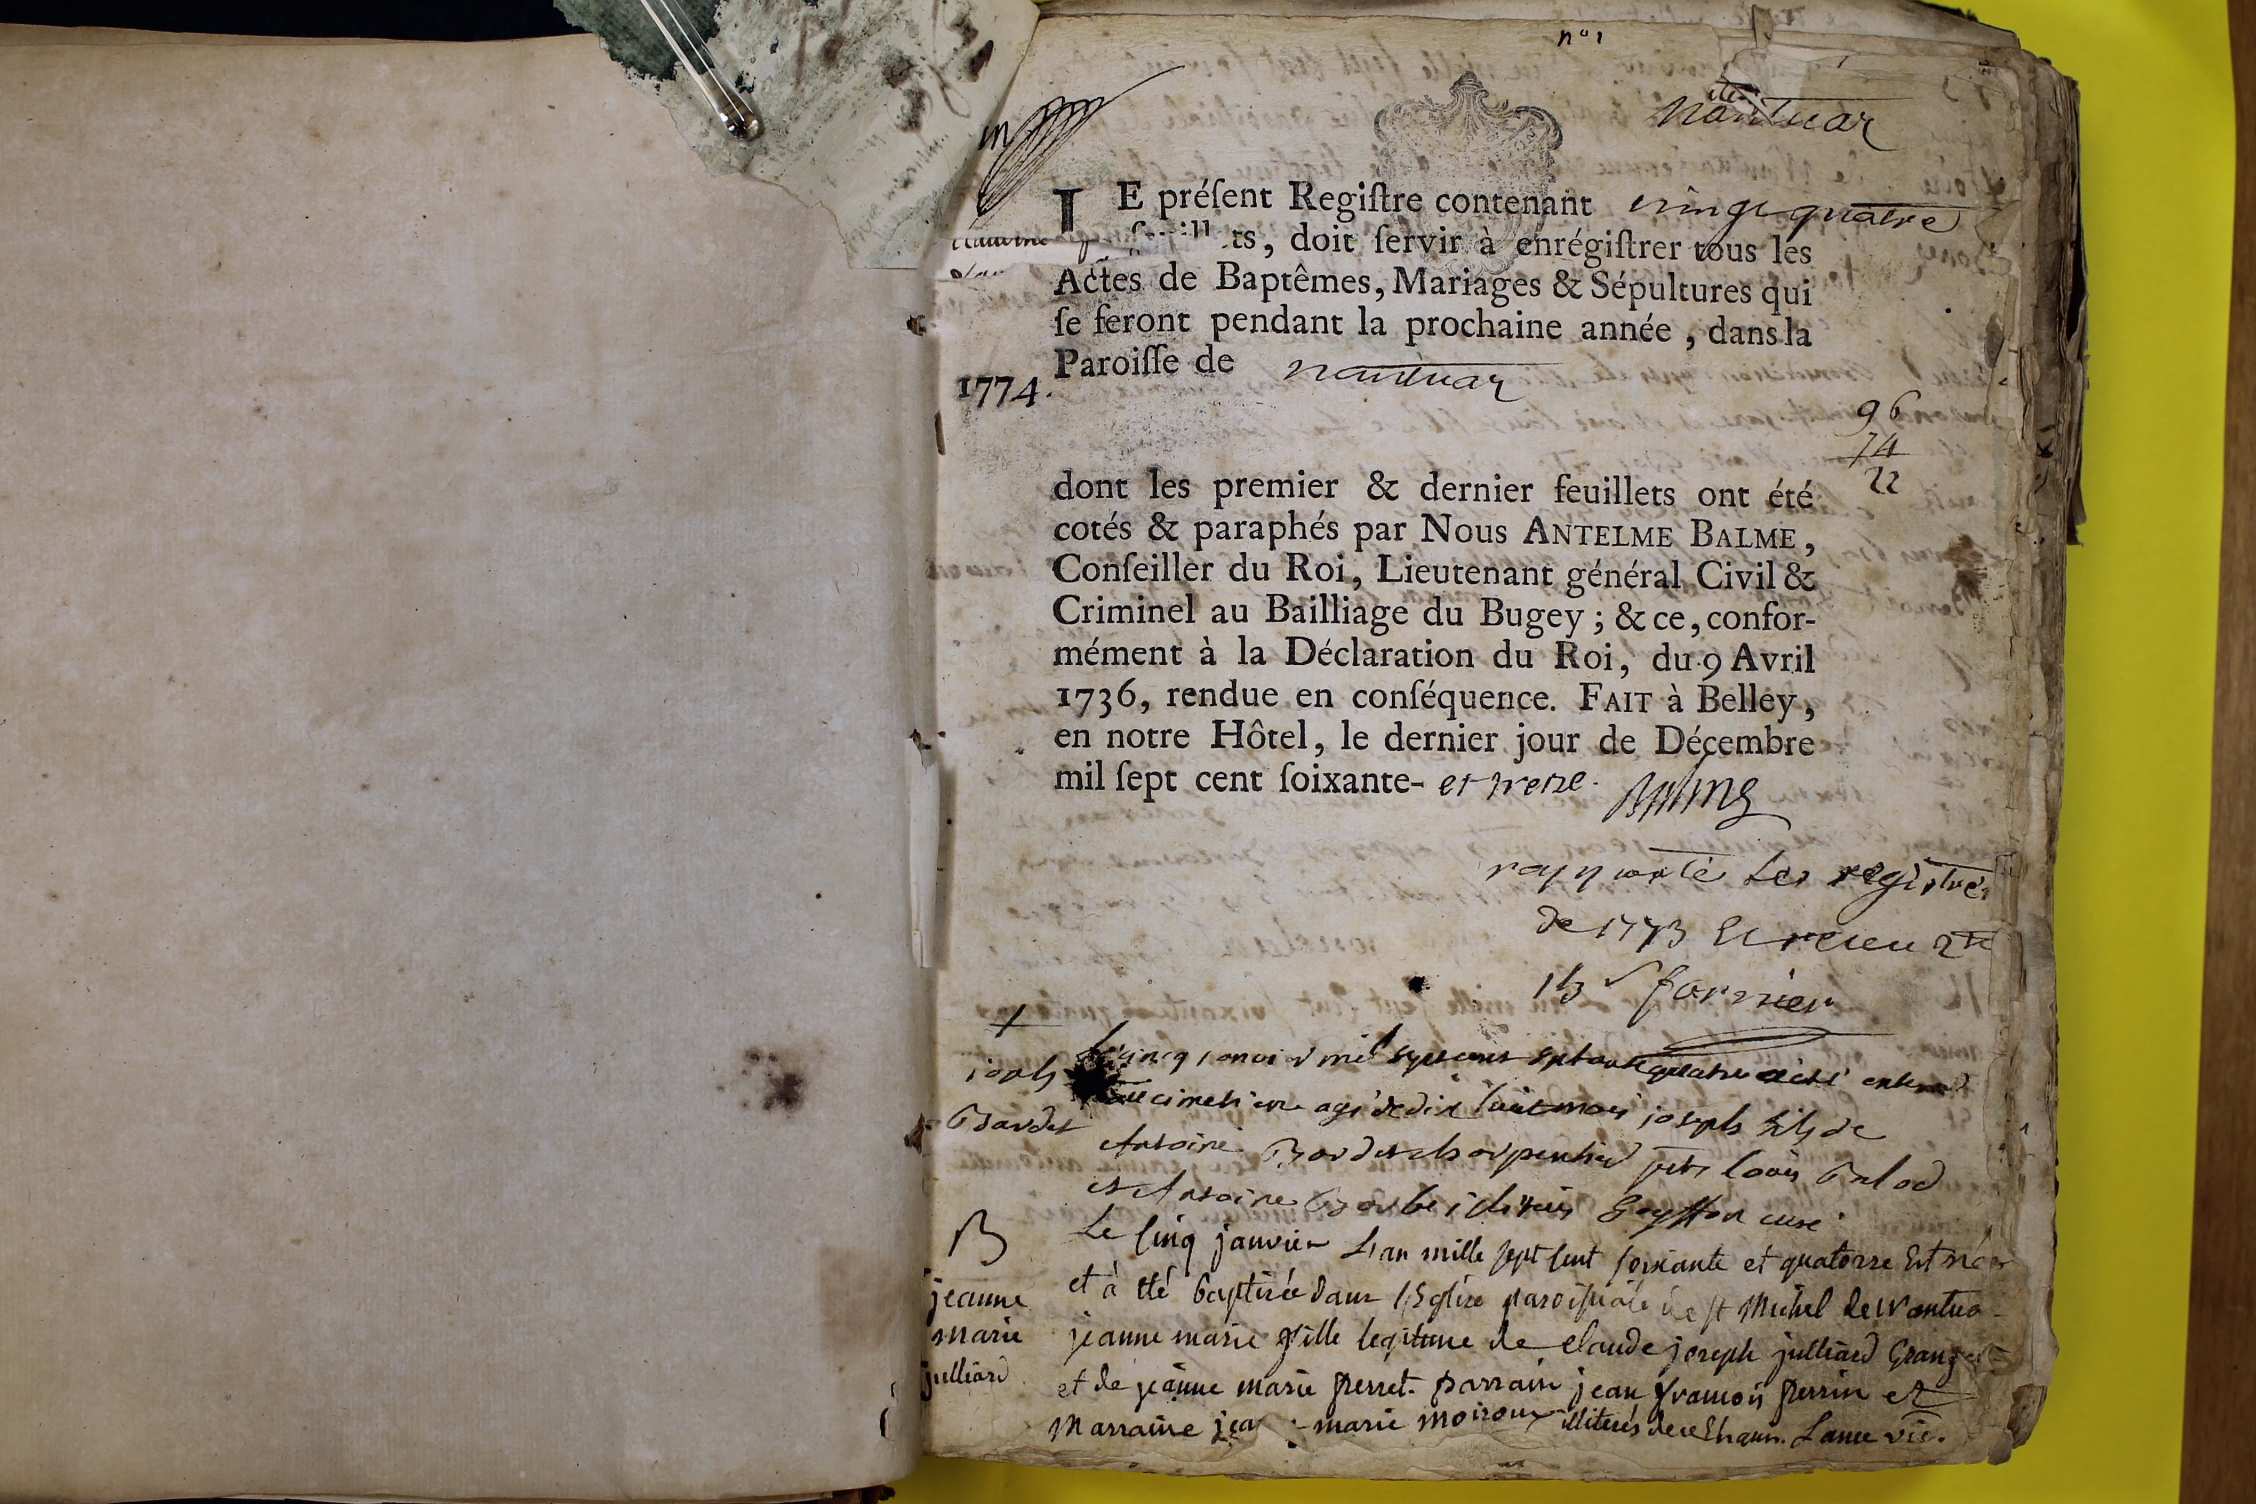 n° 1
nantuar
LE préſent Regiſtre contenant vingt quatre
feuillets, doit ſervir à enrégiſtrer tous les
Actes de Baptêmes, Mariages & Sépultures qui
ſe feront pendant la prochaine année, dans la
Paroiſſe de nantuar
1774.
96
74
22
dont les premier & dernier feuillets ont été
cotés & paraphés par Nous ANTELME BALME,
Conſeiller du Roi, Lieutenant général Civil &
Criminel au Bailliage du Bugey; & ce, confor-
mément à la Déclaration du Roi, du 9 Avril
1736, rendue en conſéquence. FAIT à Belley,
en notre Hôtel, le dernier jour de Décembre
mil ſept cent ſoixante- et treize. Balme
rapporté les registres
de 1773 et receu
fornier
+
joseph
Bardet
Le cinq janvier mil sept cent septante quatre a été enterré
au cimetiere agé de dix huit mois joseph fils de
Antoine Bardet charpentier pnts louis
et Antoine illiterés Guyffon curé
B
jeanne
marie
julliard
Le cinq janvier L'an mille sept cent soixante et quatorze Est née
et à été baptisée dans l'Eglise paroissiale de st Michel de Nantua
jeanne marie fille legitime de claude joseph julliard Granger
et de jeanne marie perret. parrain jean françois perrin et
Marraine jea marie moiroux illiterés Lance vic.